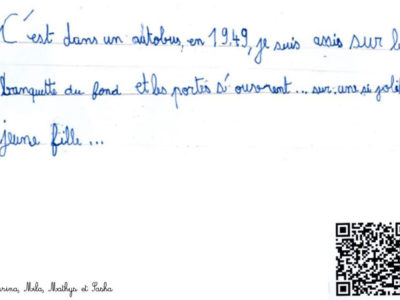 C'est dans un autobus, en 1949, je suis assis sur l
banquette du fond et les portes s'ouvrent... sur une si joli
jeune fille...
rina, Mela, Mathys et Sasha